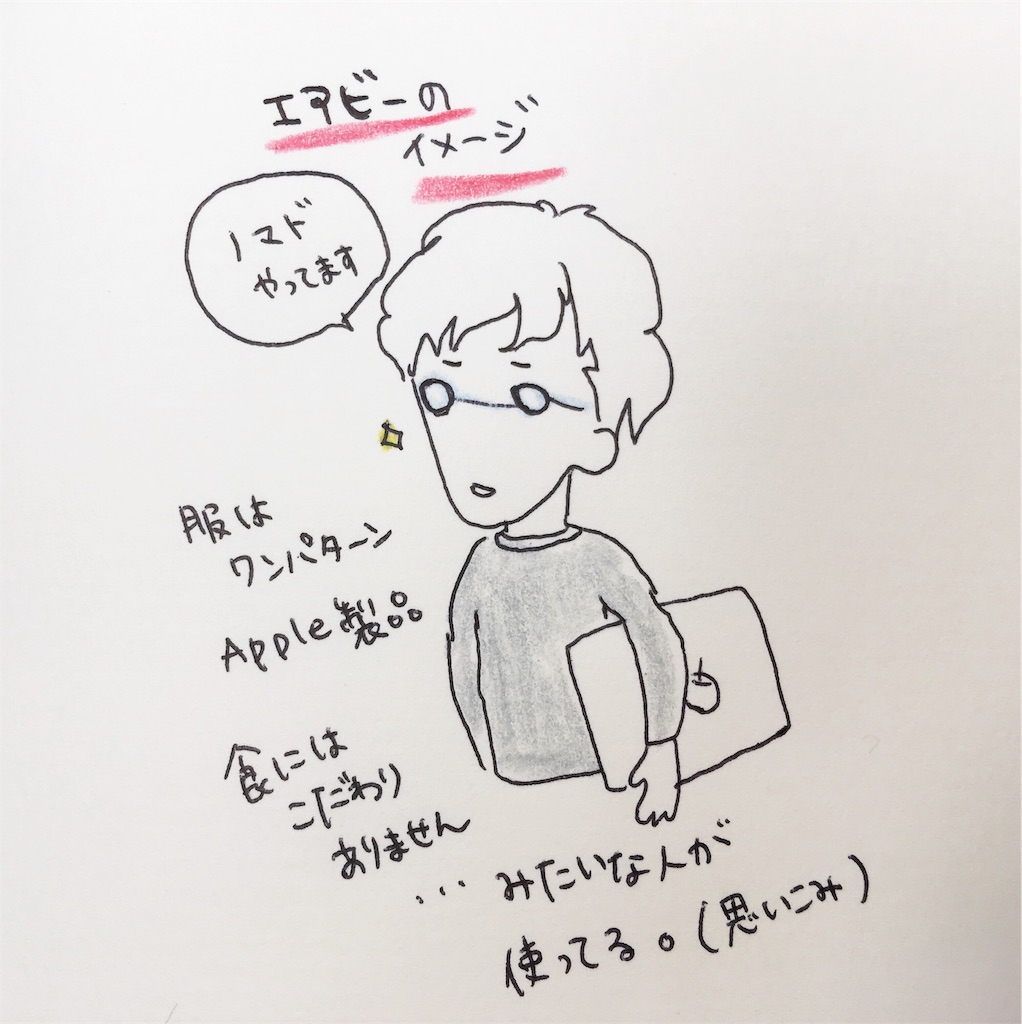 エアビーの
イメージ
ノマド
やってます
服は
ワンパターン
Apple製品
食には
こだわり
ありません
... みたいな人が
使ってる。(思いこみ)